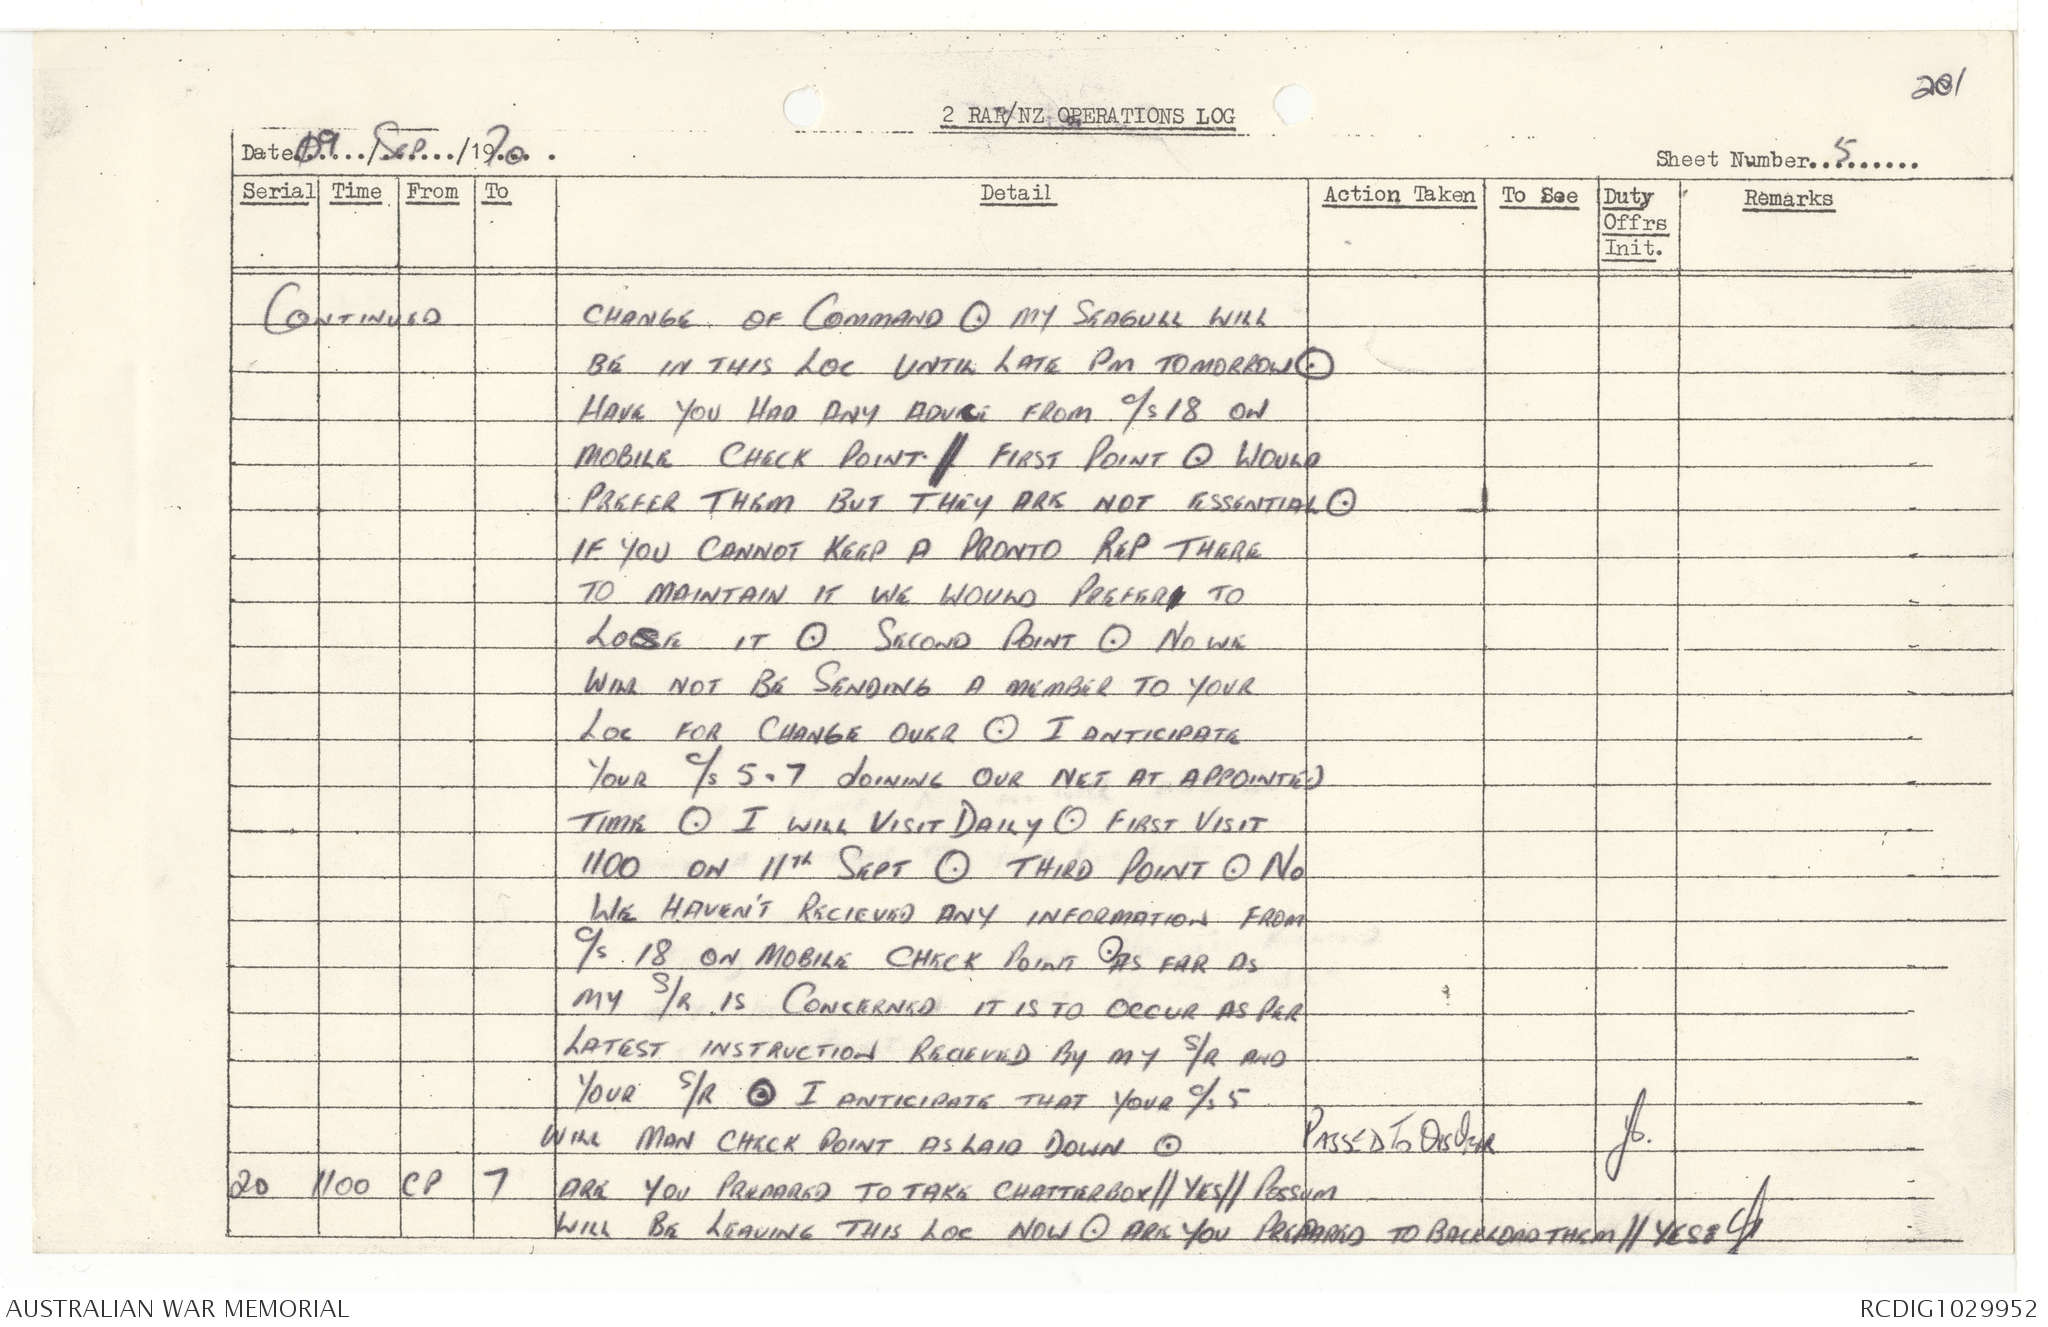 201
2 RAR/NZ OPERATIONS LOG
Date 09/Sep/1970
Sheet Number 5
Serial Time From To Detail Action Taken To See Duty Offrs Init. Remarks
CONTINUED CHANGE OF COMMAND ⊙ MY SEAGULL WILL
BE IN THIS LOC UNTIL LATE PM TOMORROW ⊙
HAVE YOU HAD ANY ADVICE FROM C/S 18 ON
MOBILE CHECK POINT // FIRST POINT ⊙ WOULD
PREFER THEM BUT THEY ARE NOT ESSENTIAL ⊙
IF YOU CANNOT KEEP A PRONTO REP THERE
TO MAINTAIN IT WE WOULD PREFER TO
LOSE IT ⊙ SECOND POINT ⊙ NO WE
WILL NOT BE SENDING A MEMBER TO YOUR
LOC FOR CHANGE OVER ⊙ I ANTICIPATE
YOUR C/S 5.7 JOINING OUR NET AT APPOINTED
TIME ⊙ I WILL VISIT DAILY ⊙ FIRST VISIT
1100 ON 11TH SEPT ⊙ THIRD POINT ⊙ NO
WE HAVEN'T RECIEVED ANY INFORMATION FROM
C/S 18 ON MOBILE CHECK POINT ⊙ AS FAR AS
MY S/R IS CONCERNED IT IS TO OCCUR AS PER
LATEST INSTRUCTION RECIEVED BY MY S/R AND
YOUR S/R ⊙ I ANTICIPATE THAT YOUR C/S 5
WILL MAN CHECK POINT AS LAID DOWN ⊙ PASSED TO
20 1100 CP 7 ARE YOU PREPARED TO TAKE CHATTERBOX // YES // POSSUM
WILL BE LEAVING THIS LOC NOW ⊙ ARE YOU PREPARED TO BACKLOAD THEM // YES
AUSTRALIAN WAR MEMORIAL
RCDIG1029952